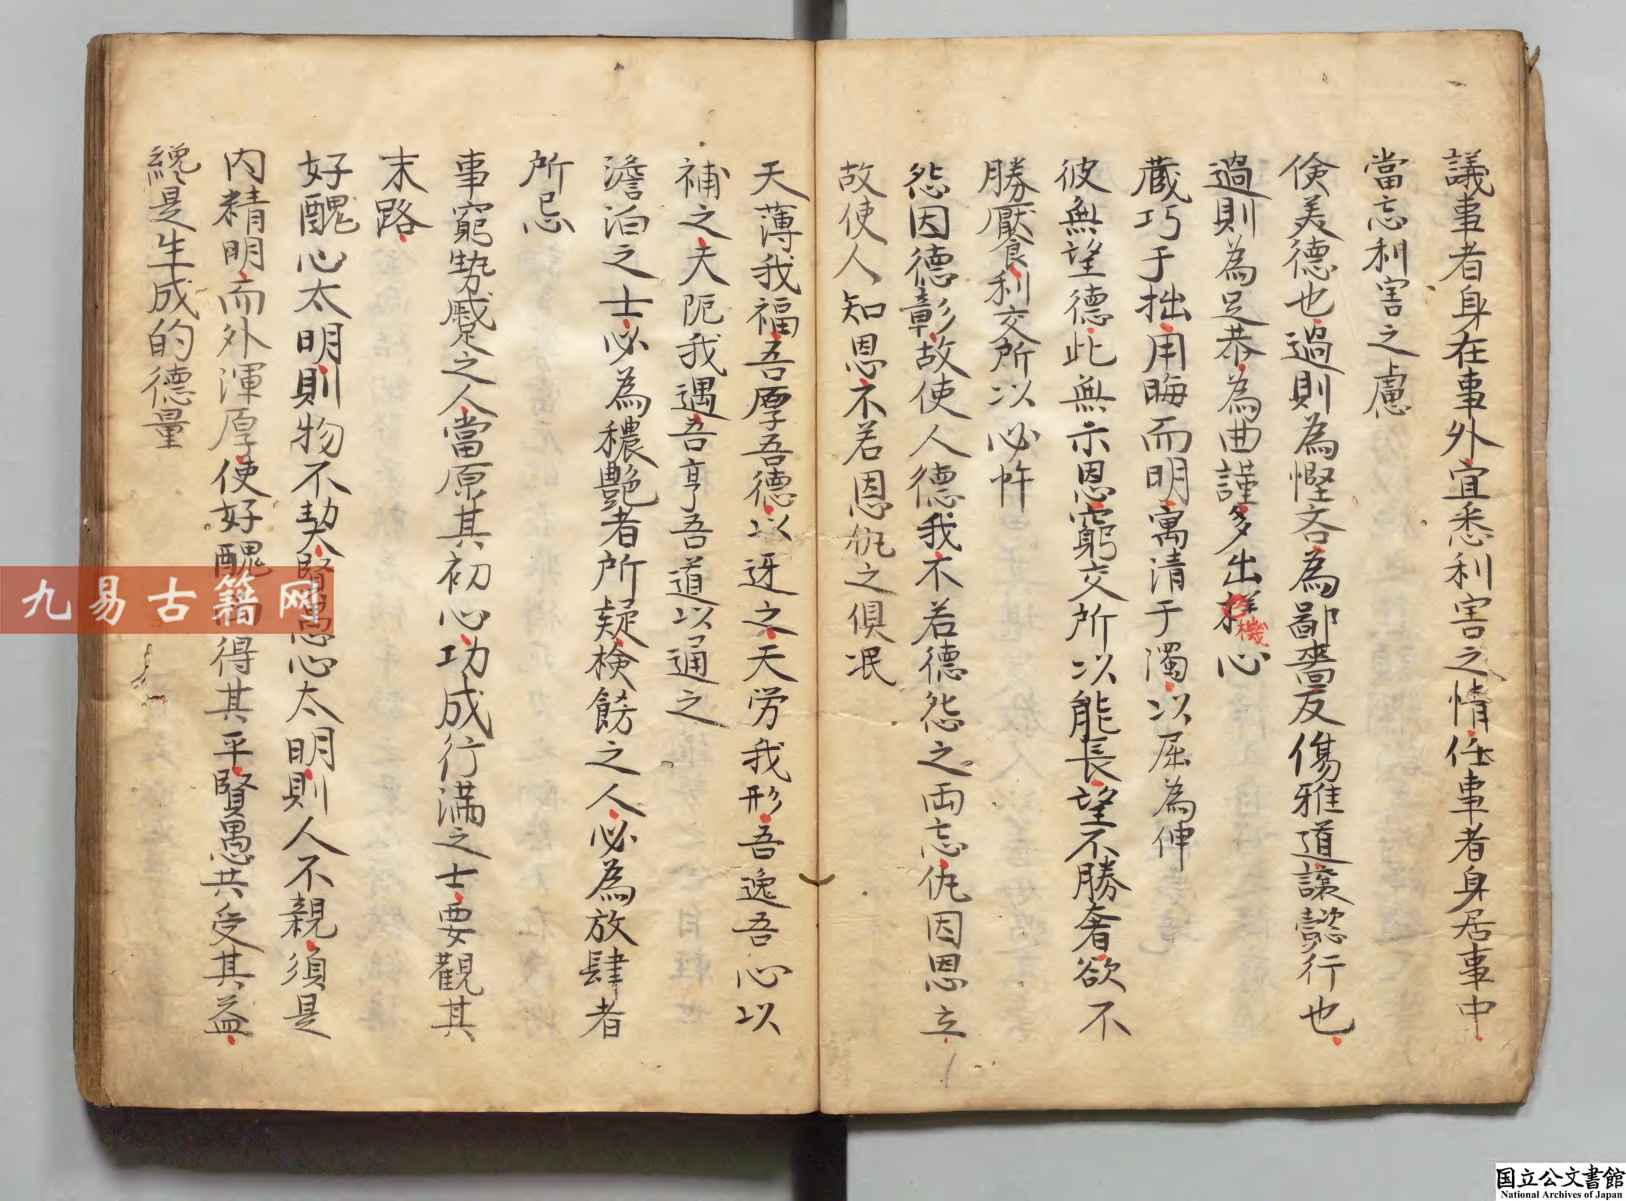 議事者身在事外宜悉利害之情任事者身居事中
當忘利害之慮
儉美德也過則為慳吝為鄙嗇反傷雅道讓懿行也
過則為足恭為曲謹多出機心
蔵巧于拙用晦而明寓清于濁以屈為伸
彼無望德此無示恩窮交所以能長望不勝奢欲不
勝厭食利交所以必忤
怨因德彰故使人德我不若德怨之両忘仇因恩立
故使人知恩不若恩仇之俱泯
天薄我福吾厚吾德以迓之天労我形吾逸吾心以
補之夫阨我遇吾亨吾道以通之
澹泊之士必為穠艷者所疑検飭之人必為放肆者
所忌
事窮勢蹙之人當原其初心功成行満之士要觀其
末路
好醜心太明則物不契賢愚心太明則人不親須是
内精明而外渾厚使好醜得其平賢愚共受其益
纔是生成的德量
九易古籍网
国立公文書館
National Archives of Japan